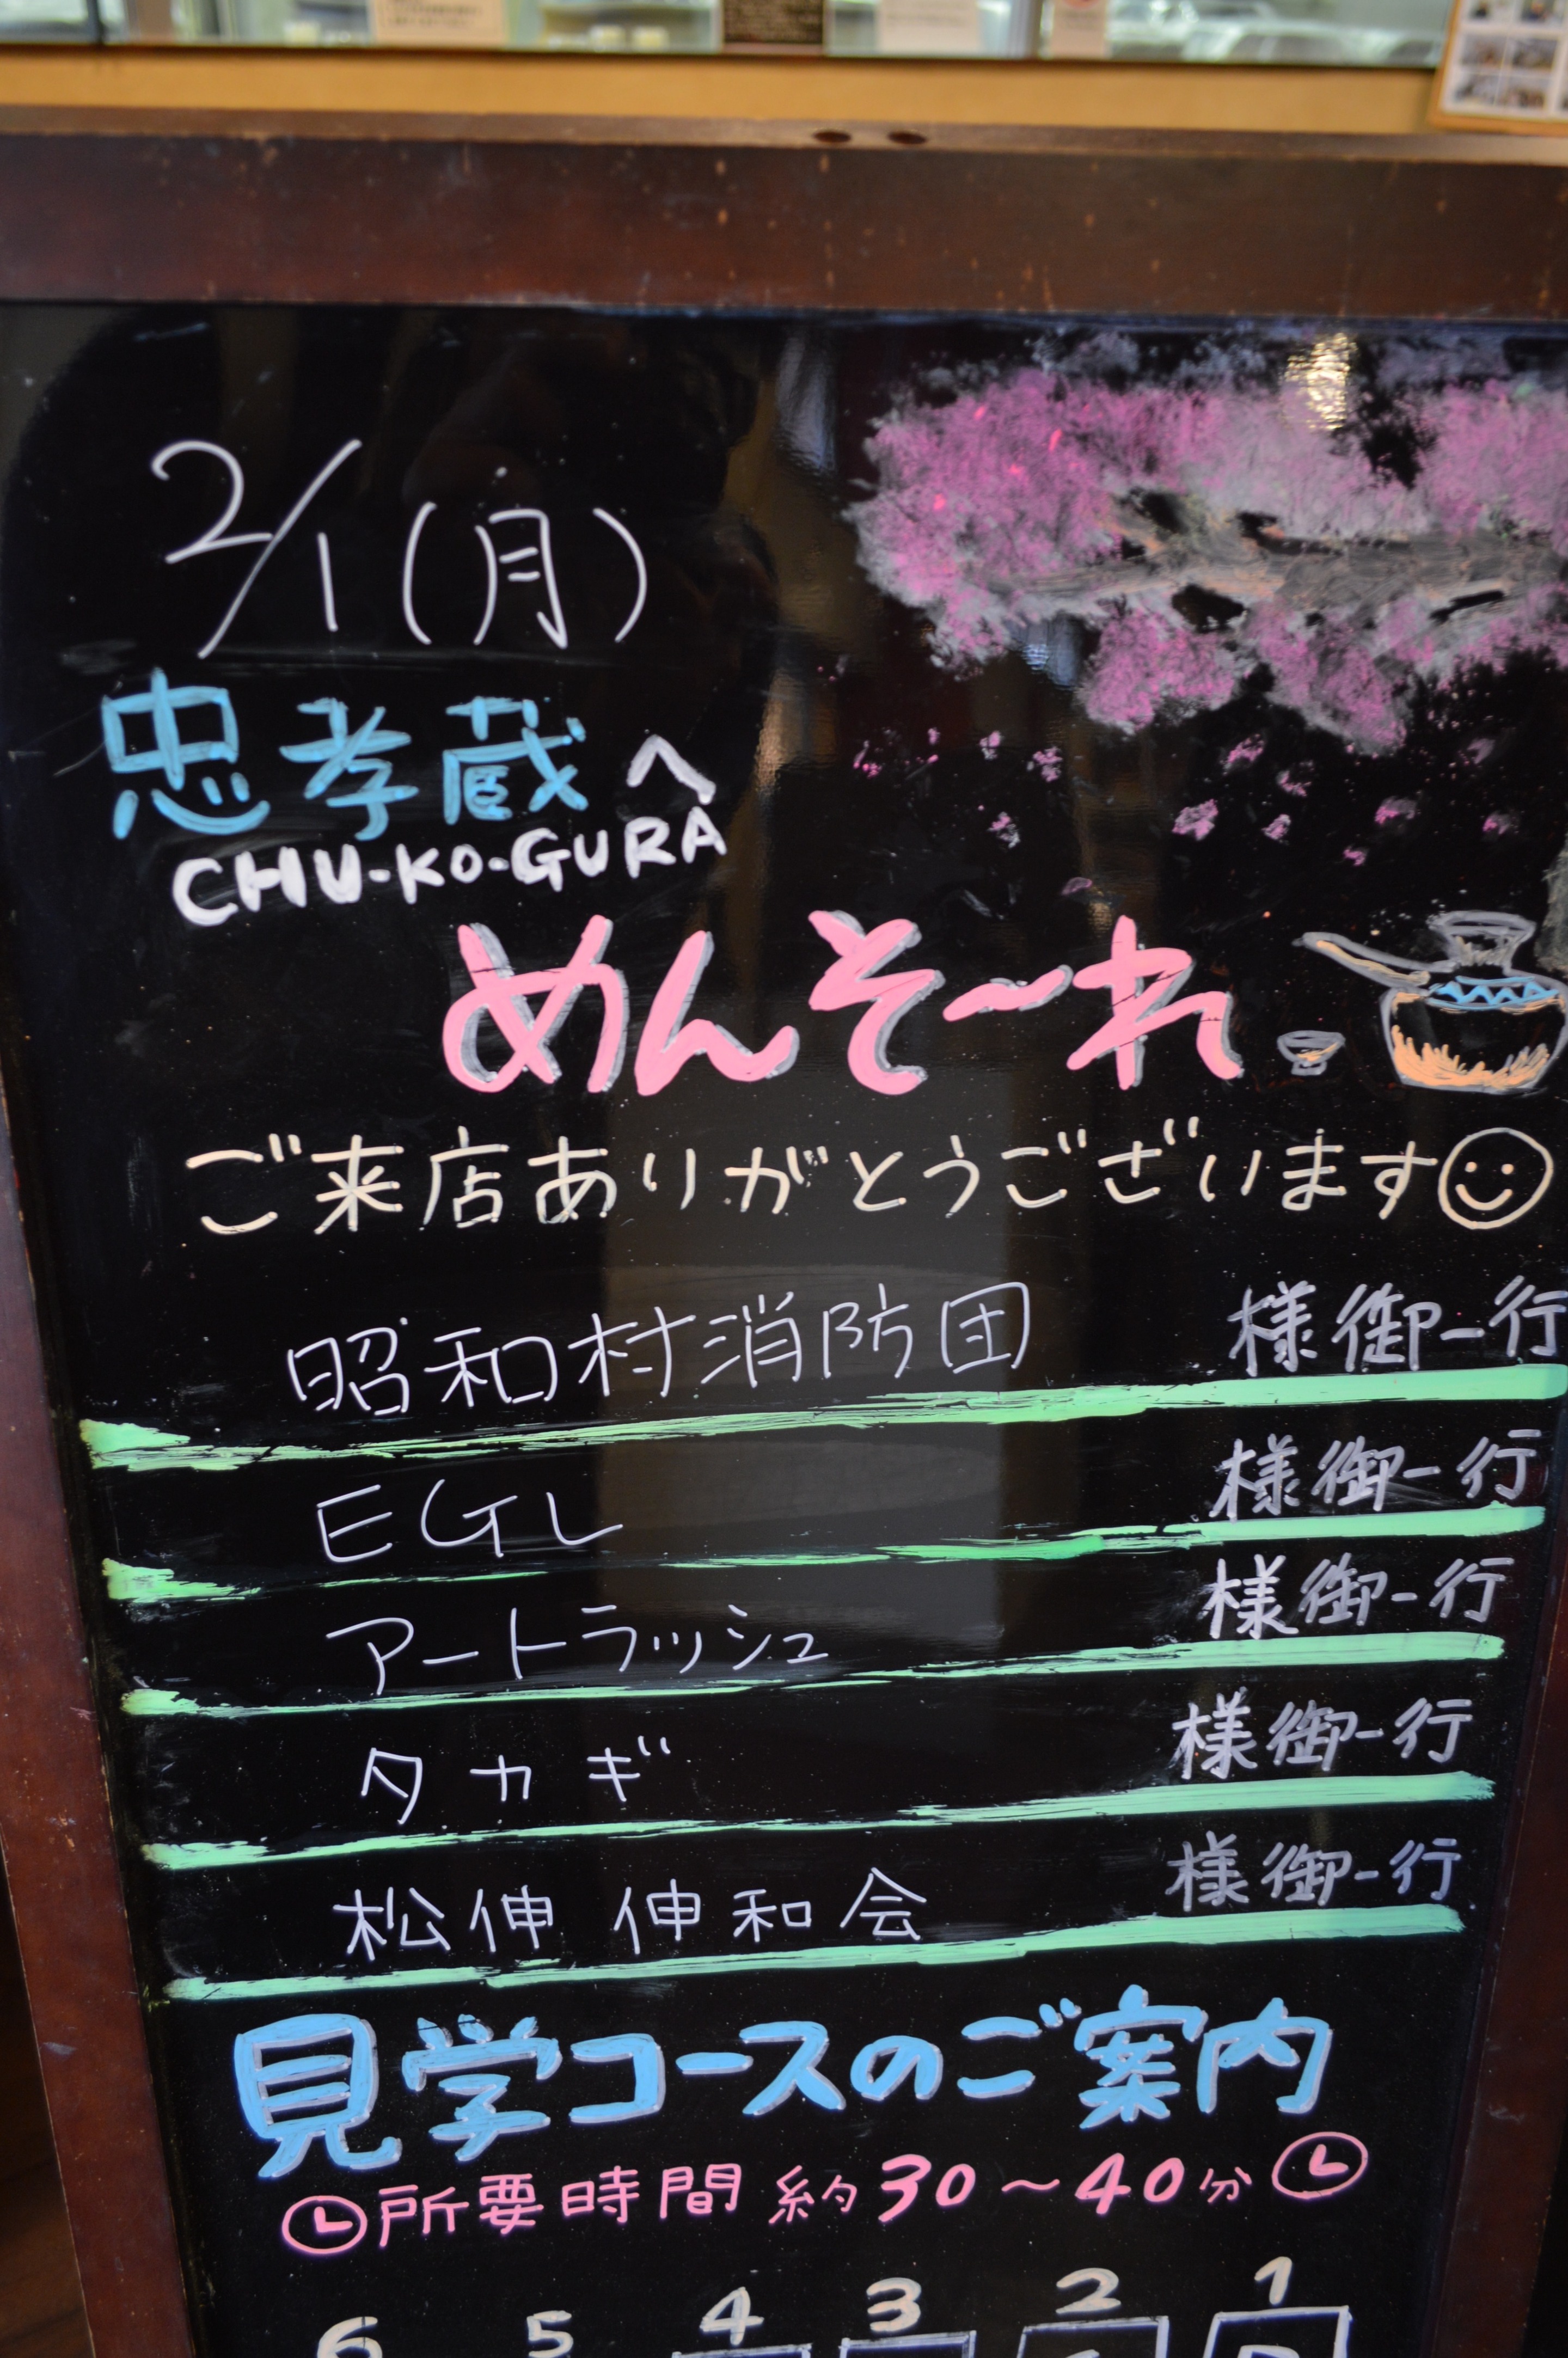 2/1(月)
忠孝蔵へ
CHU-KO-GURA
めんそ〜れ
ご来店ありがとうございます
昭和村消防団 様御一行
EGL 様御一行
アートラッシュ 様御一行
タカギ 様御一行
松伸 伸和会 様御一行
見学コースのご案内
所要時間 約30〜40分
6 5 4 3 2 1